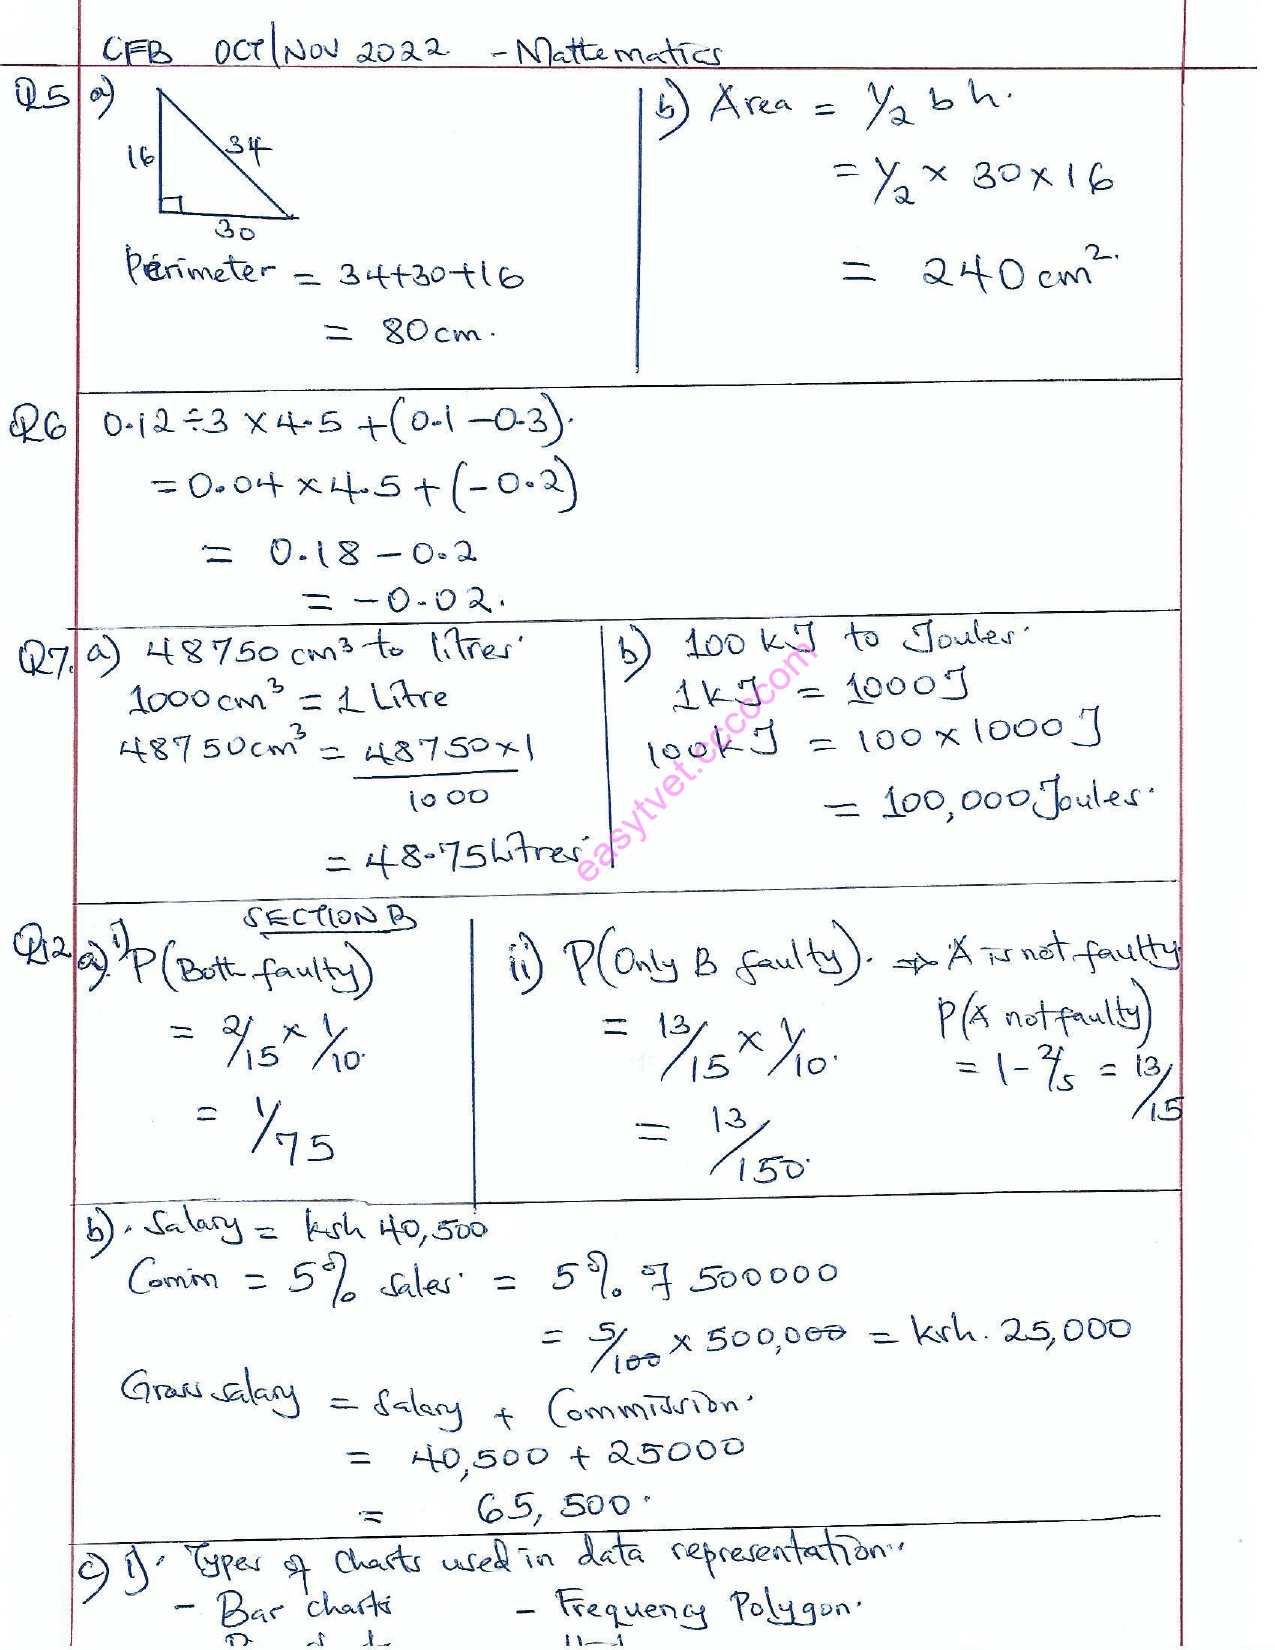 CFB OCT/NOV 2022 - Mathematics
Q5 a)
16
34
30
Perimeter = 34+30+16
= 80cm.
b) Area = 1/2 b h.
= 1/2 × 30×16
= 240cm².
Q6 0.12÷3 × 4.5 + (0.1 - 0.3).
= 0.04 × 4.5 + (-0.2)
= 0.18 - 0.2
= -0.02.
Q7. a) 48750 cm³ to litres.
1000cm³ = 1 Litre
48750cm³ = 48750×1
1000
= 48.75 Litres.
b) 100 kJ to Joules.
1kJ = 1000J
100kJ = 100 × 1000J
= 100,000 Joules.
easytvet.cccccom
SECTION B
Q12 a) i) P(Both faulty)
= 2/15 × 1/10.
= 1/75
ii) P(Only B faulty). ⇒ A is not faulty
= 13/15 × 1/10.
= 13/150.
P(A not faulty)
= 1 - 2/5 = 13/15
b). Salary = ksh 40,500
Comm = 5% sales. = 5% of 500000
= 5/100 × 500,000 = ksh. 25,000
Gross salary = salary + Commission.
= 40,500 + 25000
= 65,500.
c) i). Types of charts used in data representation.
- Bar charts - Frequency Polygon.